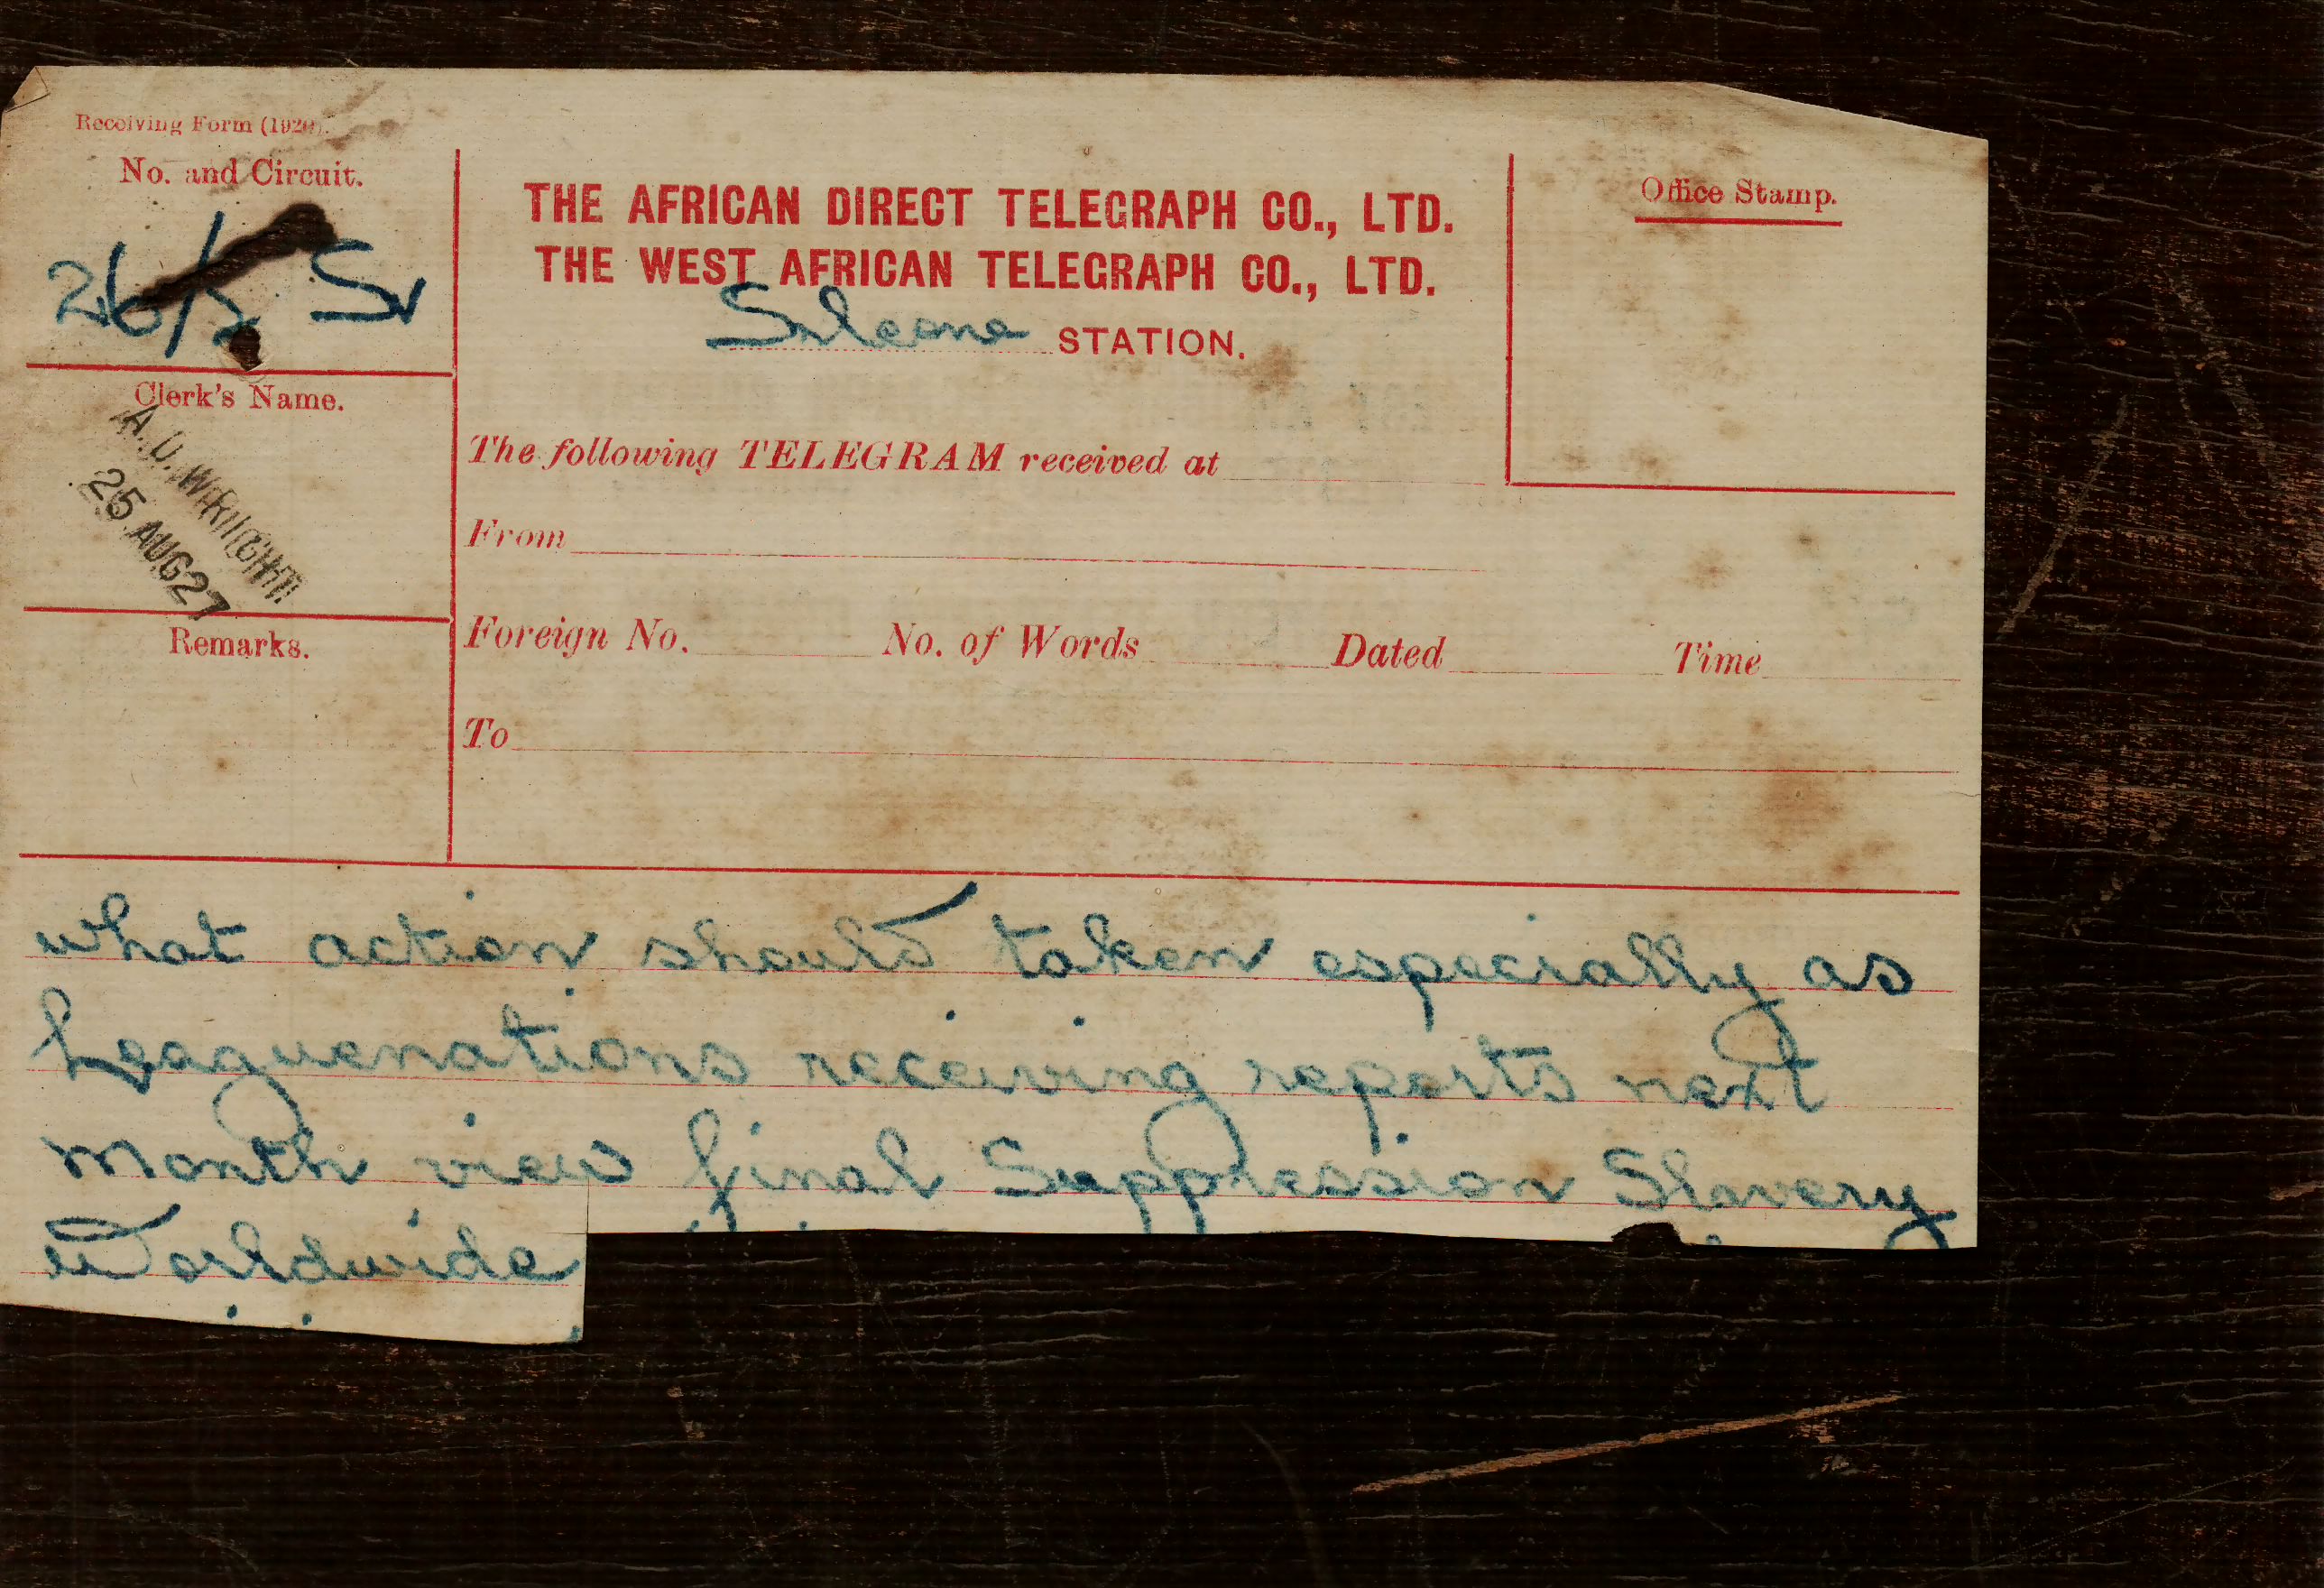 Receiving Form (1920).
No. and Circuit.
26/2 Sv
Clerk's Name.
A.D. WRIGHT
25 AUG 27
Remarks.
THE AFRICAN DIRECT TELEGRAPH CO., LTD.
THE WEST AFRICAN TELEGRAPH CO., LTD.
Sxleone STATION.
Office Stamp.
The following TELEGRAM received at
From
Foreign No. No. of Words Dated Time
To
what action should taken especially as
Leaguenations receiving reports next
month view final Suppression Slavery
Worldwide